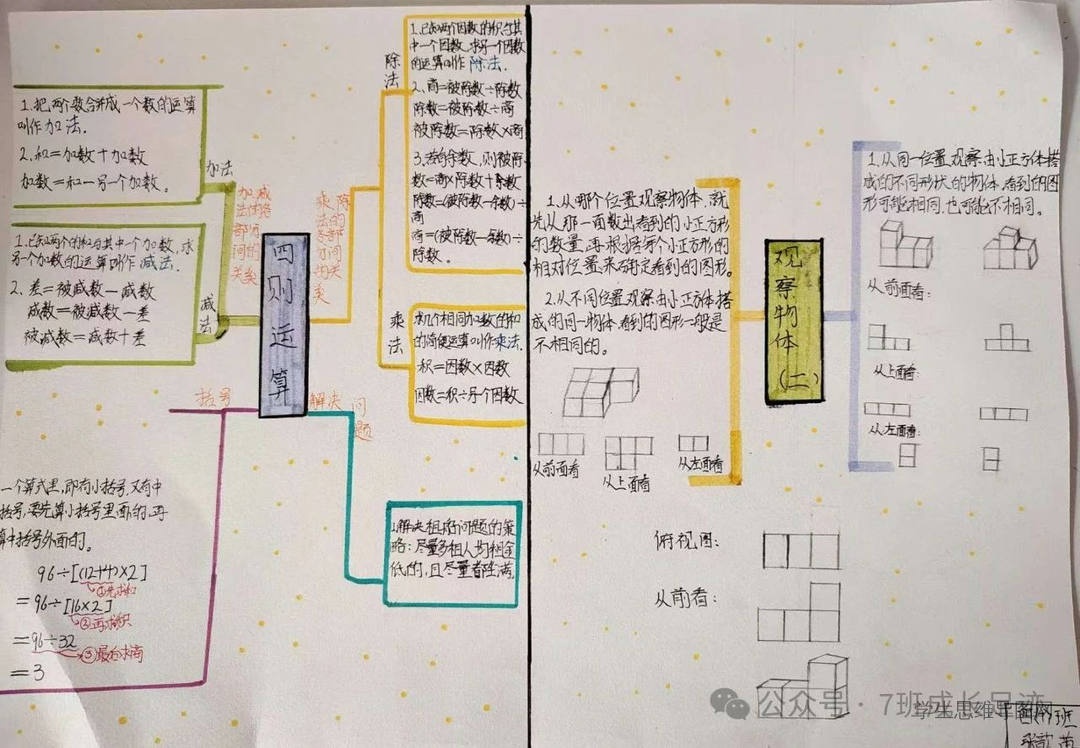 1.把两个数合并成一个数的运算
叫作加法.
2.和=加数+加数
加数=和-另一个加数.
加法
1.已知两个的和与其中一个加数,求
另一个加数的运算叫作减法.
2.差=被减数-减数
减数=被减数-差
被减数=减数+差
减法
加减法的各部分间的关系
四则运算
乘除法的各部分间的关系
除法
1.已知两个因数的积与其
中一个因数,求另一个因数
的运算叫作除法.
2.商=被除数÷除数
除数=被除数÷商
被除数=除数×商
3.有余数,则被除
数=商×除数+余数
除数=(被除数-余数)÷
商
商=(被除数-余数)÷
除数.
乘法
求几个相同加数的和
的简便运算叫作乘法.
积=因数×因数
因数=积÷另个因数
括号
一个算式里,即有小括号,又有中
括号,要先算小括号里面的,再
算中括号外面的。
96÷[(12+4)×2]
①先求和
=96÷[16×2]
②再求积
=96÷32
③最后求商
=3
解决问题
1.解决租房问题的策
略:尽量多租人均租金
低的,且尽量省住满.
1.从哪个位置观察物体,就
先从那一面数出看到的小正方形
的数量,再根据每个小正方形的
相对位置来确定看到的图形。
2.从不同位置观察由小正方体搭
成的同一物体,看到的图形一般是
不相同的。
从前面看
从上面看
从左面看
观察物体(二)
1.从同一位置观察由小正方体搭
成的不同形状的物体,看到的图
形可能相同,也可能不相同。
从前面看:
从上面看:
从左面看:
俯视图:
从前看:
公众号·7班成长足迹
学生思维导图网